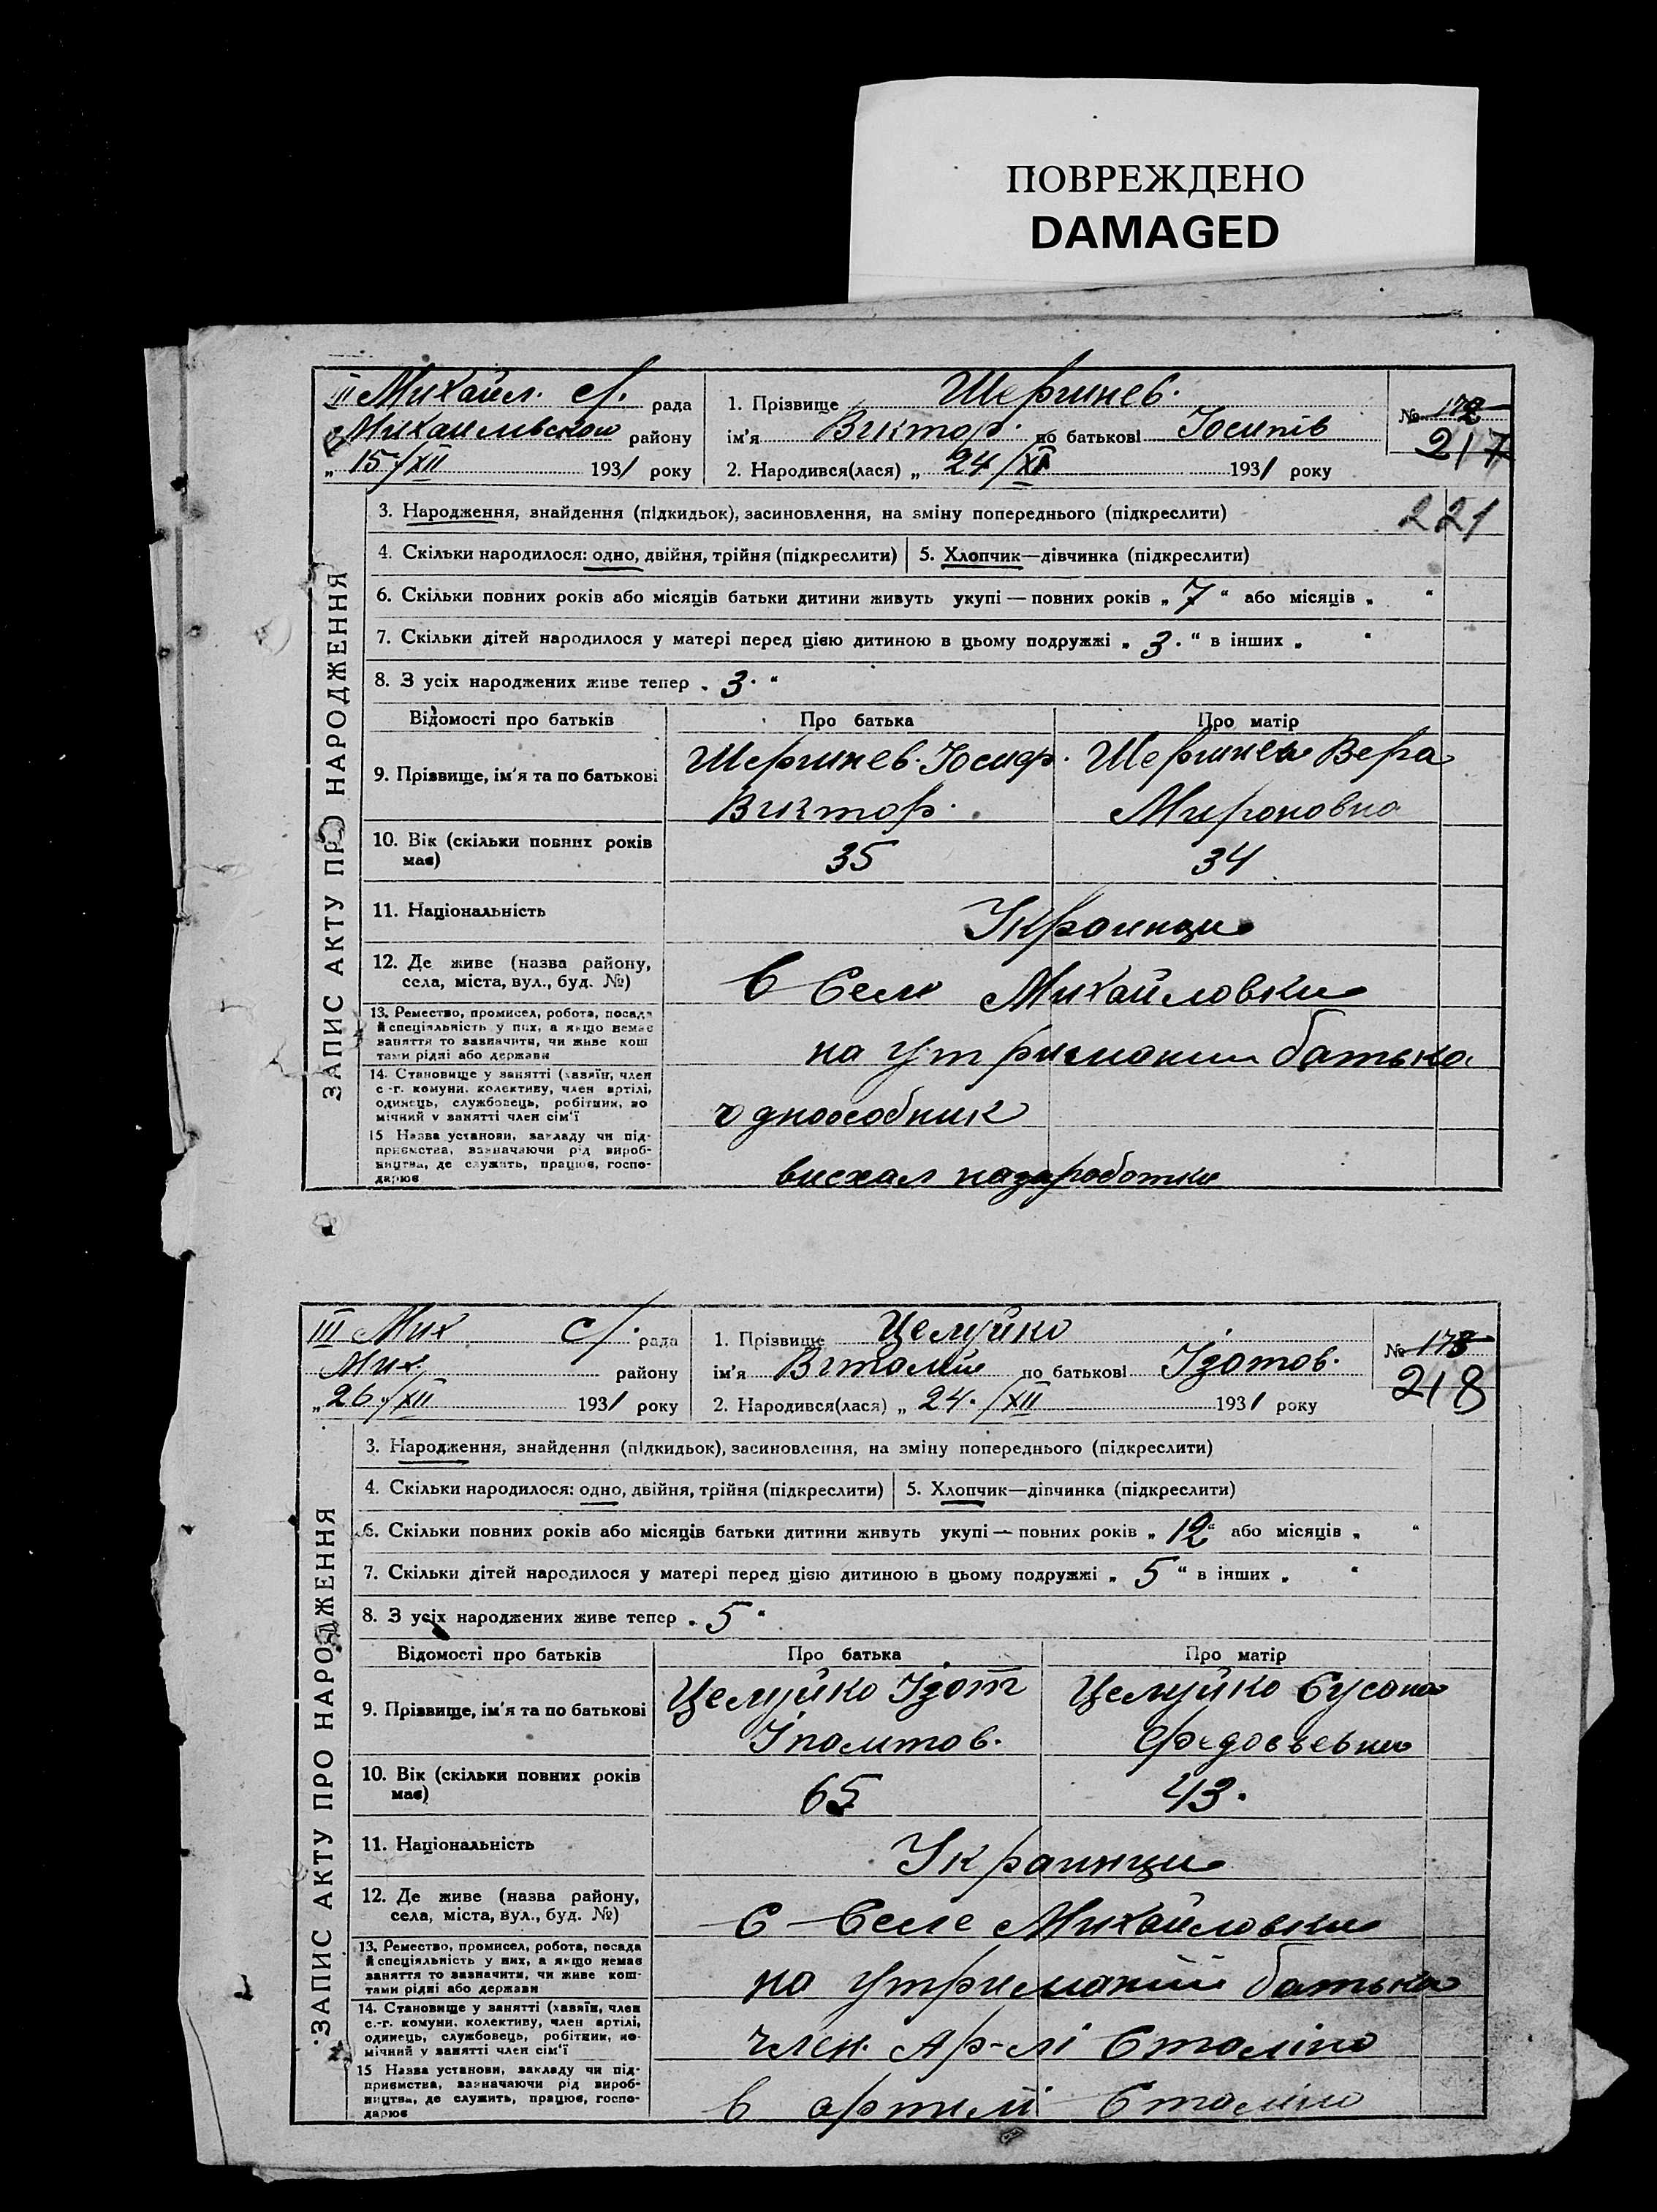 ПОВРЕЖДЕНО
DAMAGED
II Михайл. с/. рада
Михаилвском району
„ 15/XII 1931 року
1. Прізвище Шершнев.
ім'я Виктор. по батькові Іосипів
2. Народився(лася) „ 24/XI 1931 року
№ 172
217
221
ЗАПИС АКТУ ПРО НАРОДЖЕННЯ
3. Народження, знайдення (підкидьок), засиновлення, на зміну попереднього (підкреслити)
4. Скільки народилося: одно, двійня, трійня (підкреслити) 5. Хлопчик—дівчинка (підкреслити)
6. Скільки повних років або місяців батьки дитини живуть укупі — повних років „ 7 “ або місяців „ “
7. Скільки дітей народилося у матері перед цією дитиною в цьому подружжі „ 3. “ в інших „ “
8. З усіх народжених живе тепер „ 3. “
Відомості про батьків Про батька Про матір
9. Прізвище, ім'я та по батькові
Шершнев. Іосиф. Виктор.
Шершнева Вера Мироновна
10. Вік (скільки повних років має) 35 34
11. Національність Украинци
12. Де живе (назва району, села, міста, вул., буд. №) в Селе Михайловки
13. Ремество, промисел, робота, посада й спеціяльність у них, а якщо немає заняття то зазначити, чи живе коштами рідні або держави
на утримании батька
14. Становище у занятті (хазяїн, член с.-г. комуни, колективу, член артілі, одинець, службовець, робітник, помічний у занятті член сім'ї
одноособник
15 Назва установи, закладу чи підприємства, зазначаючи рід виробництва, де служить, працює, господарює
виехал назаработки
III Мих с/. рада
Мих. району
„ 26/XII 1931 року
1. Прізвище Целуйко
ім'я Витолий по батькові Ізотов.
2. Народився(лася) „ 24./XII 1931 року
№ 173
218
ЗАПИС АКТУ ПРО НАРОДЖЕННЯ
3. Народження, знайдення (підкидьок), засиновлення, на зміну попереднього (підкреслити)
4. Скільки народилося: одно, двійня, трійня (підкреслити) 5. Хлопчик—дівчинка (підкреслити)
6. Скільки повних років або місяців батьки дитини живуть укупі — повних років „ 12 “ або місяців „ “
7. Скільки дітей народилося у матері перед цією дитиною в цьому подружжі „ 5 “ в інших „ “
8. З усіх народжених живе тепер „ 5 “
Відомості про батьків Про батька Про матір
9. Прізвище, ім'я та по батькові
Целуйко Ізот Іполитов.
Целуйко Сусана
10. Вік (скільки повних років має) 65 43.
11. Національність Украинци
12. Де живе (назва району, села, міста, вул., буд. №) С Селе Михайловки
13. Ремество, промисел, робота, посада й спеціяльність у них, а якщо немає заняття то зазначити, чи живе коштами рідні або держави
на утриманий батька
14. Становище у занятті (хазяїн, член с.-г. комуни, колективу, член артілі, одинець, службовець, робітник, помічний у занятті член сім'ї
член. Ар-лі Сталіно
15 Назва установи, закладу чи підприємства, зазначаючи рід виробництва, де служить, працює, господарює
в артилі Сталіно